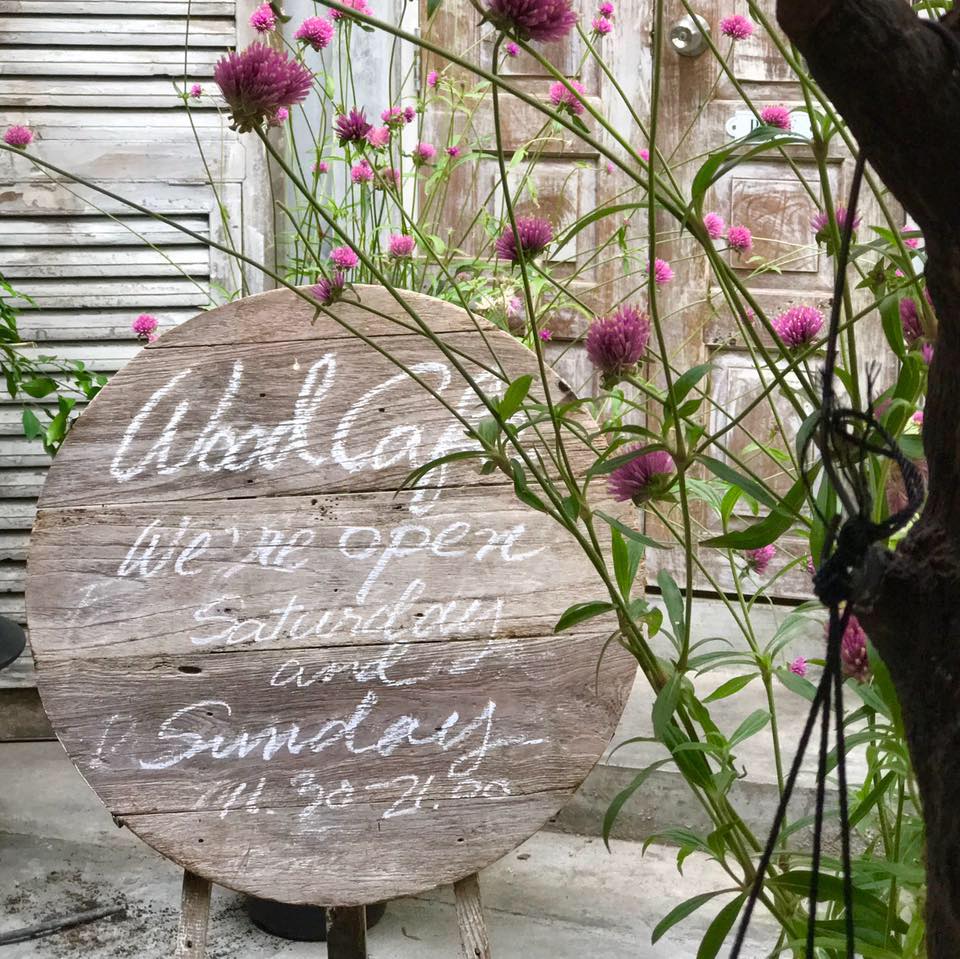 Wood Cafe
We're open
Saturday
and
Sunday
11.30-21.00